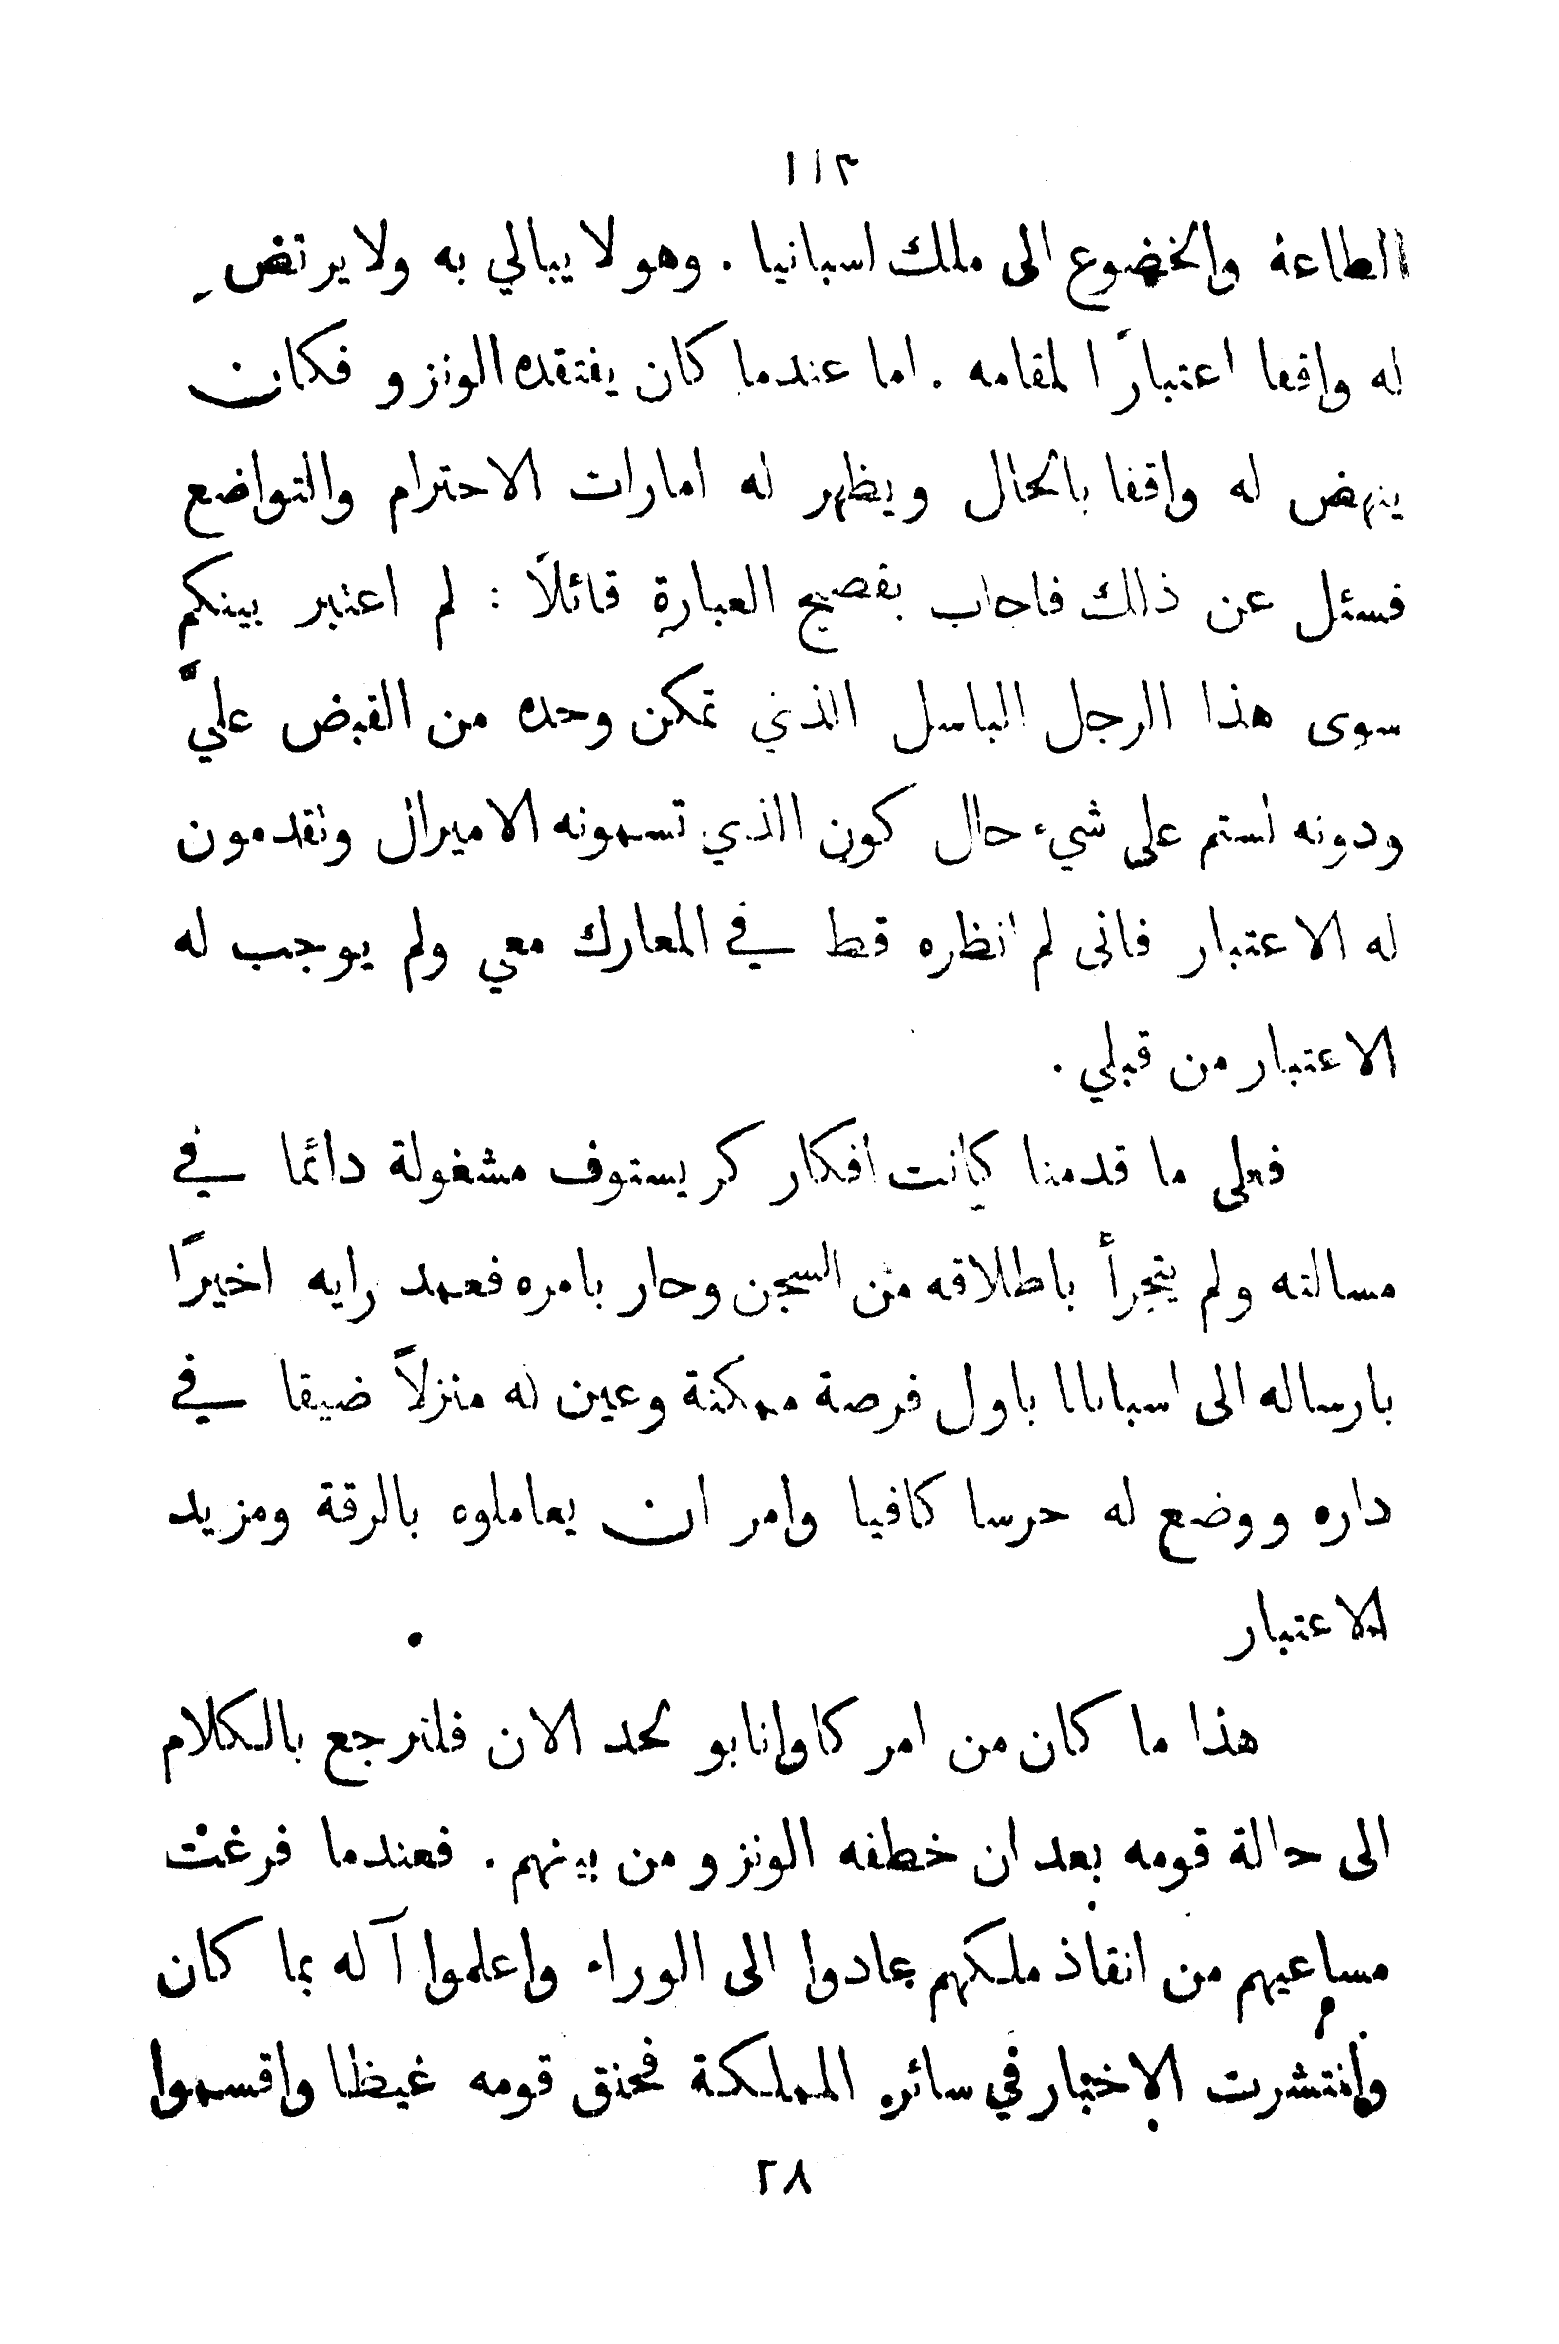 ١١٣
الطاعة والخضوع الى ملك اسبانيا . وهو لا يبالي به ولا يرتضِ
له واقفا اعتبارًا لمقامه . اما عندما كان يفتقده الونزو فكان
ينهض له واقفا بالحال ويظهر له امارات الاحترام والتواضع
فسئل عن ذلك فاجاب بفصيح العبارة قائلاً : لم اعتبر بينكم
سوى هذا الرجل الباسل الذي تمكن وحده من القبض عليَّ
ودونه لستم على شيء حال كون الذي تسمونه الاميرال وتقدمون
له الاعتبار فانى لم انظره قط في المعارك معي ولم يوجب له
الاعتبار من قبلي .
فعلى ما قدمنا كانت افكار كريستوف مشغولة دائما في
مسالته ولم يتجرأ باطلاقه من السجن وحار بامره فعمد رايه اخيرًا
بارساله الى اسبانيا باول فرصة ممكنة وعين له منزلاً ضيقا في
داره ووضع له حرسا كافيا وامر ان يعاملوه بالرقة ومزيد
الاعتبار .
هذا ما كان من امر كاوانابو لحد الان فلنرجع بالكلام
الى حالة قومه بعد ان خطفه الونزو من بينهم . فعندما فرغت
مساعيهم من انقاذ ملكهم عادوا الى الوراء واعلموا آله بما كان
وانتشرت الاخبار في سائر المملكة فحنق قومه غيظا واقسموا
٢٨